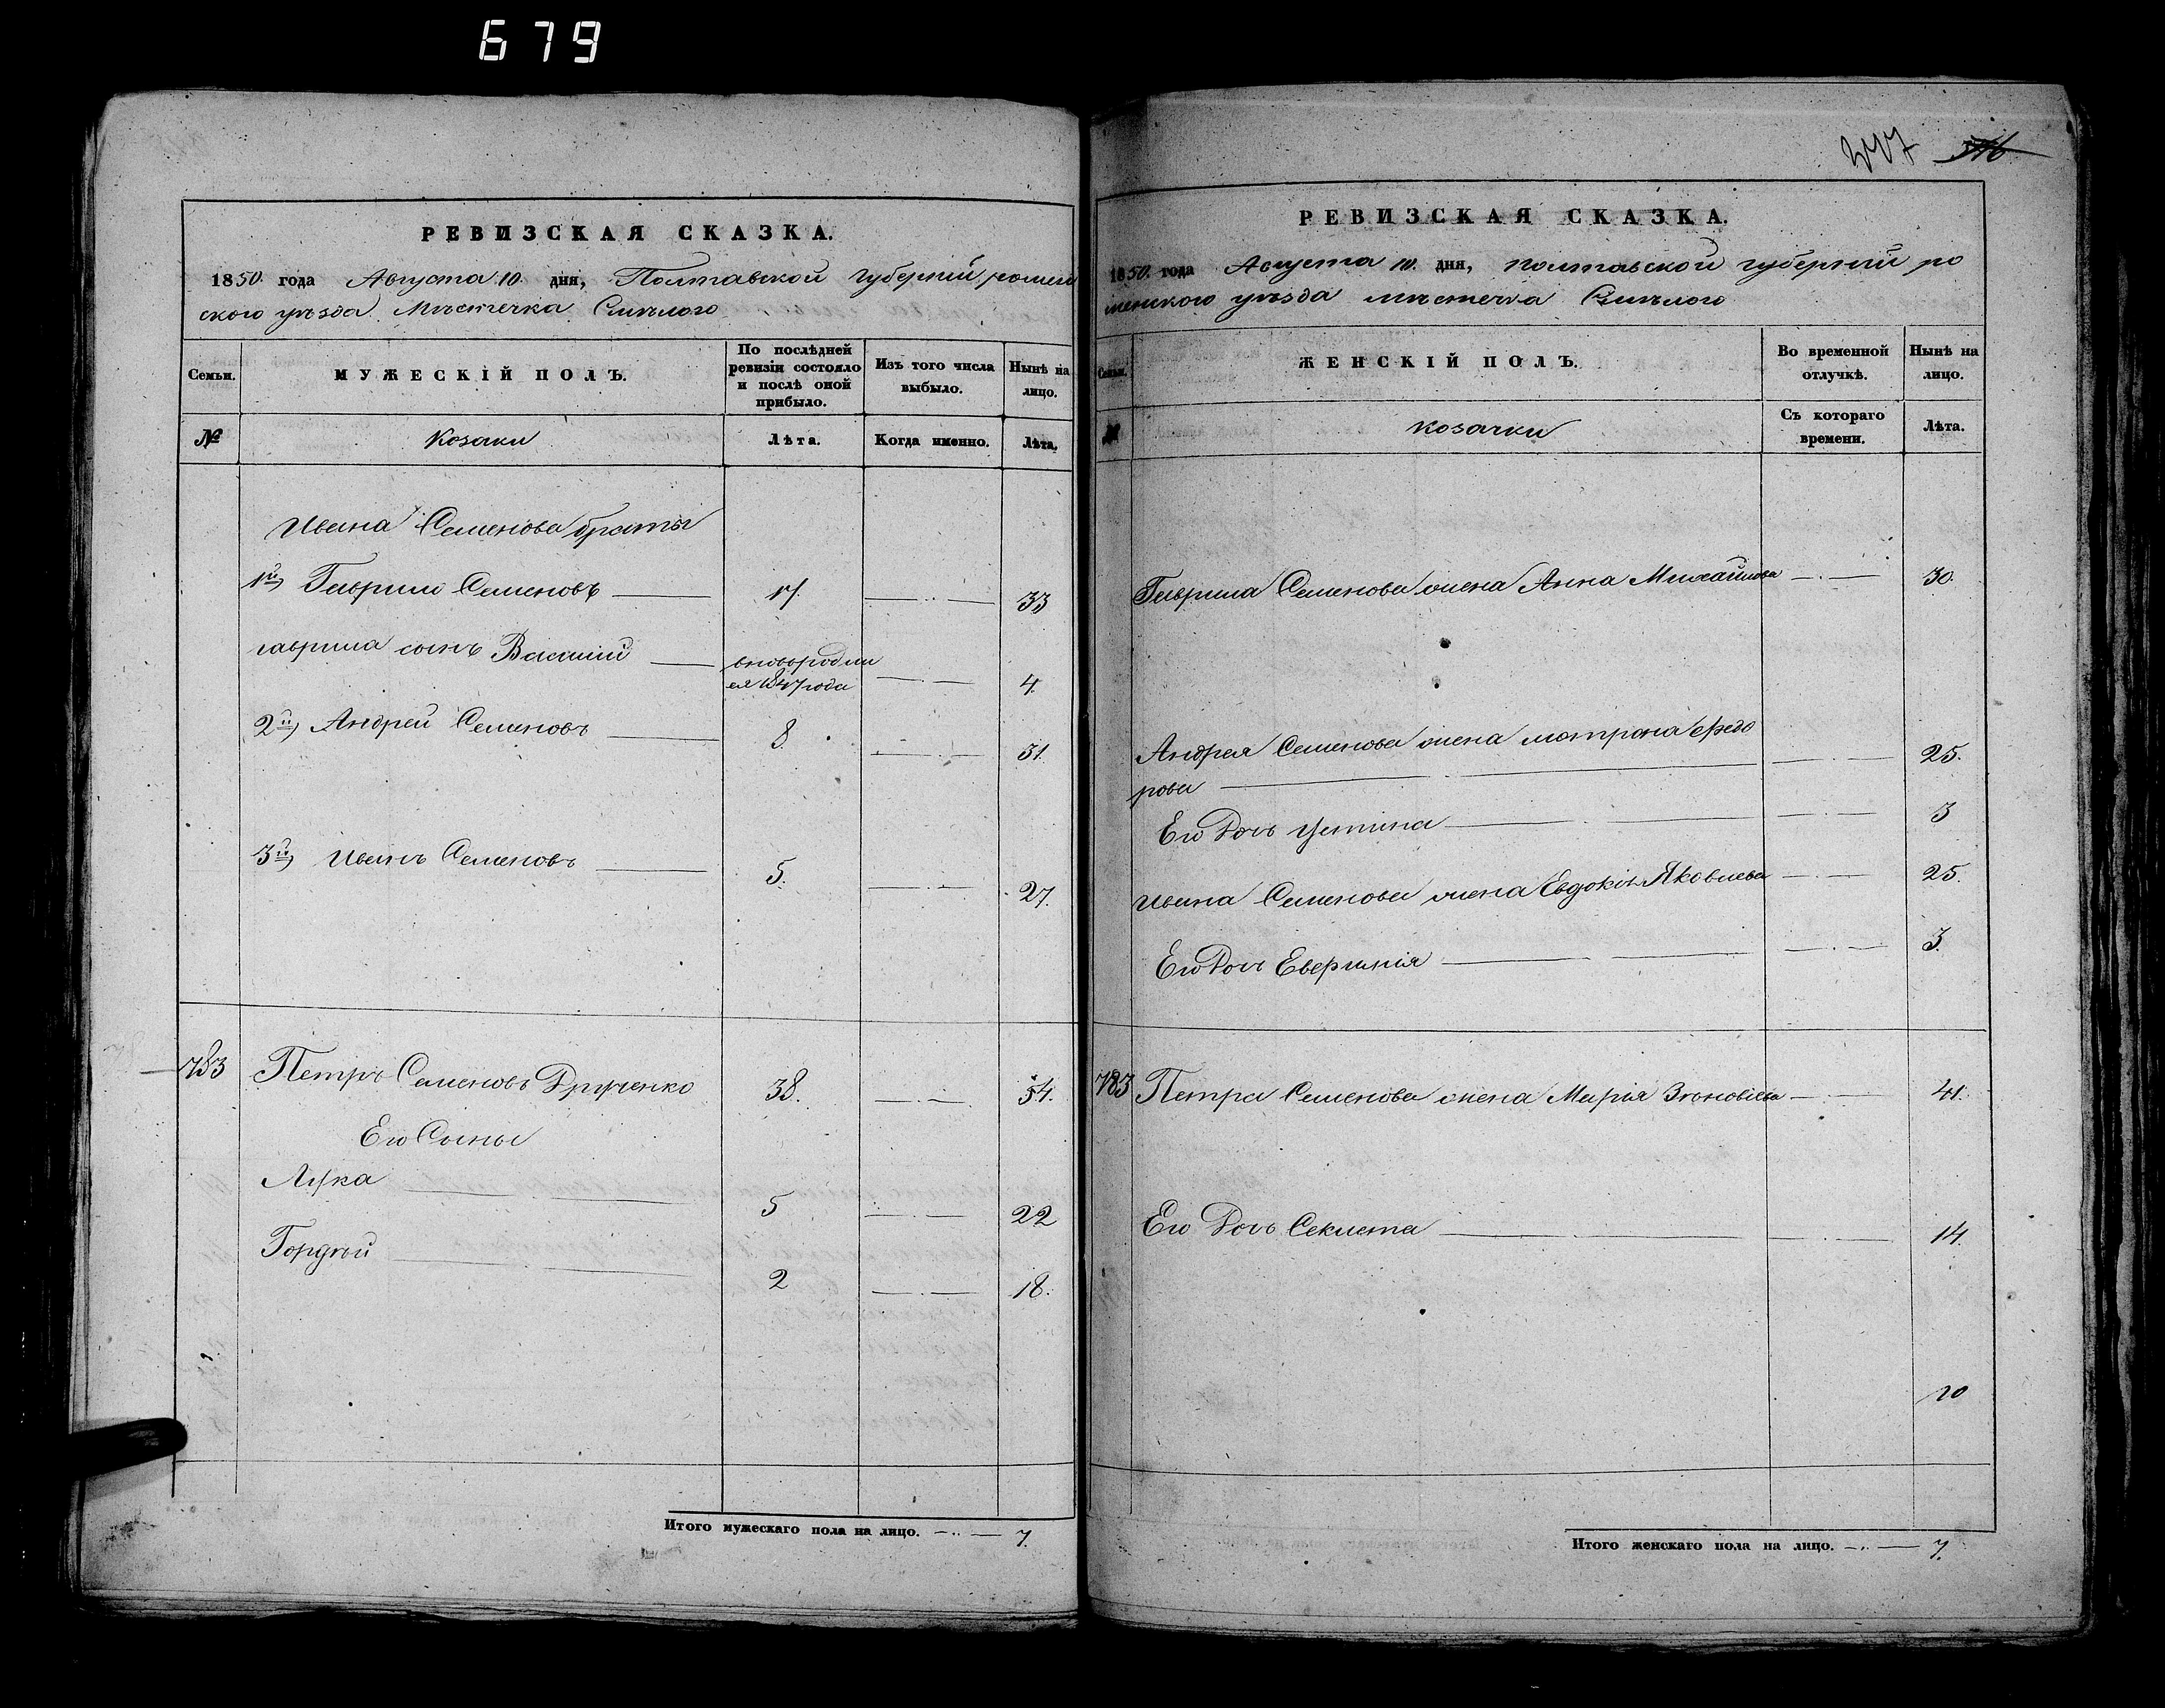 679
РЕВИЗСКАЯ СКАЗКА.
1850. года Августа 10. дня, Полтавской Губерніи ромен
ского уѣзда Мѣстечка Смѣлого
Семьи.
МУЖЕСКІЙ ПОЛЪ.
По послѣдней ревизіи состояло и послѣ оной прибыло.
Изъ того числа выбыло.
Нынѣ на лицо.
№
Козаки
Лѣта.
Когда именно.
Лѣта.
Ивана Семенова браты
1й Гаврило Семеновъ 17. 33
гаврила сынъ Василий вновородил
ся 1847 года 4.
2й Андрей Семеновъ 8. 31.
3й Иванъ Семеновъ 5. 27.
783 Петръ Семеновъ Друченко 38. 54.
Его Сыны
Лука 5 22
Гордѣй 2 18.
Итого мужескаго пола на лицо. 7.
247 516
РЕВИЗСКАЯ СКАЗКА.
1850. года Августа 10. дня, полтавской губерніи ро
менского уѣзда мѣстечка Смѣлого
Семьи.
ЖЕНСКІЙ ПОЛЪ.
Во временной отлучкѣ.
Нынѣ на лицо.
№
козачки
Съ котораго времени.
Лѣта.
Гаврила Семенова жена Анна Михайлова 30.
Андрея Семенова жена мотрона федо
рова 25.
Его Дочь Устина 3
Ивана Семенова жена Евдокія Яковлева 25.
Его Дочь Евфросинія 3.
783 Петра Семенова жена Марія Зѣновіева 41.
Его Дочь Секлета 14.
10
Итого женскаго пола на лицо. 7.